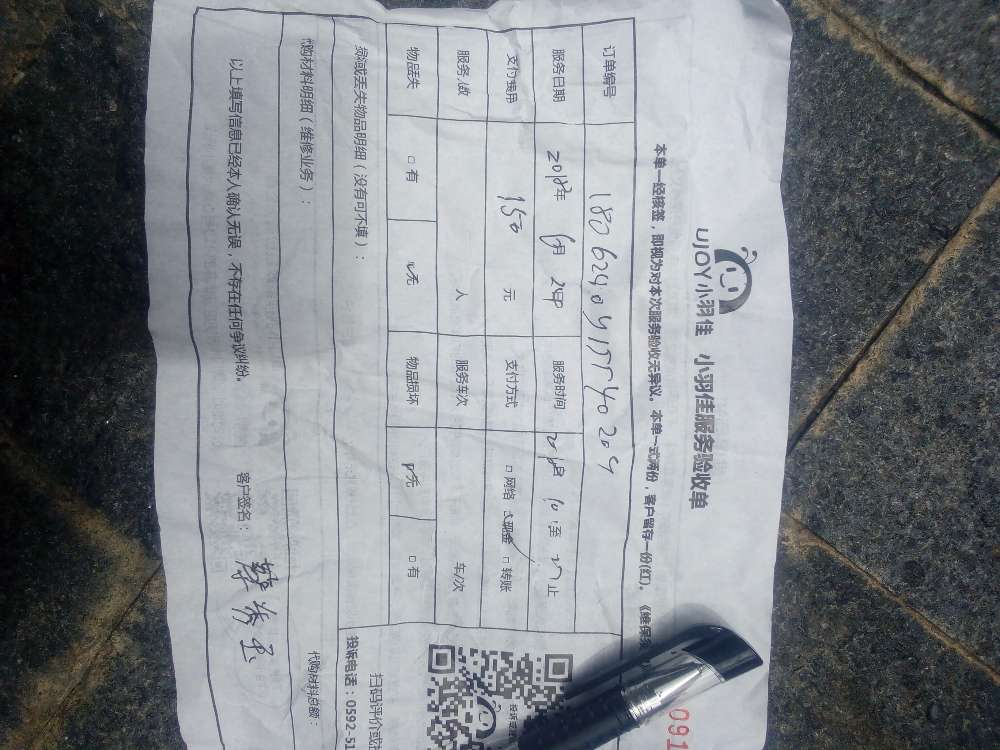 UJOY小羽佳 小羽佳服务验收单
本单一经核签，即视为对本次服务验收无异议。本单一式两份，客户留存一份(红)。《维保务
091
订单编号
服务日期 2018年 6月 24日 服务时间
支付费用 150 元 支付方式 □ 网络 现金 □ 转账
服务人数 人 服务车次 车/次
物品丢失 □ 有 无 物品损坏 无 □ 有
损坏或丢失物品明细（没有可不填）：
代购材料明细（维修业务）：
代购材料总额：
以上填写信息已经本人确认无误，不存在任何争议纠纷。 客户签名：
扫码评价或
投诉电话：0592-51